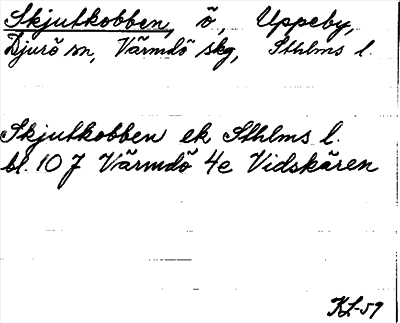 Skjutkobben, ö, Uppeby,
Djurö sn, Värmdö skg, Sthlms l.
Skjutkobben ek Sthlms l.
bl. 107 Värmdö 4e Vidskären
KL-59